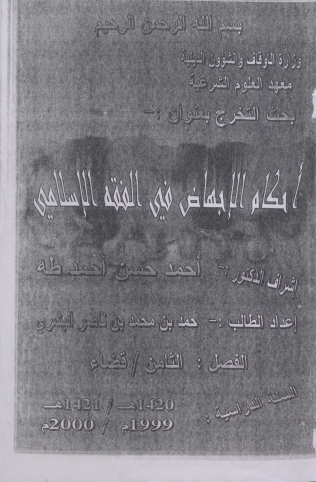 بسم الله الرحمن الرحيم
وزارة الأوقاف والشؤون الدينية
معهد العلوم الشرعية
بحث التخرج بعنوان :-
أحكام الإجهاض في الفقه الإسلامي
إشراف الدكتور :- أحمد حسن أحمد طه
إعداد الطالب :- حمد بن محمد بن ناصر
الفصل : الثامن / قضاء
السنة الدراسية : 1420هـ / 1421هـ
1999م / 2000م